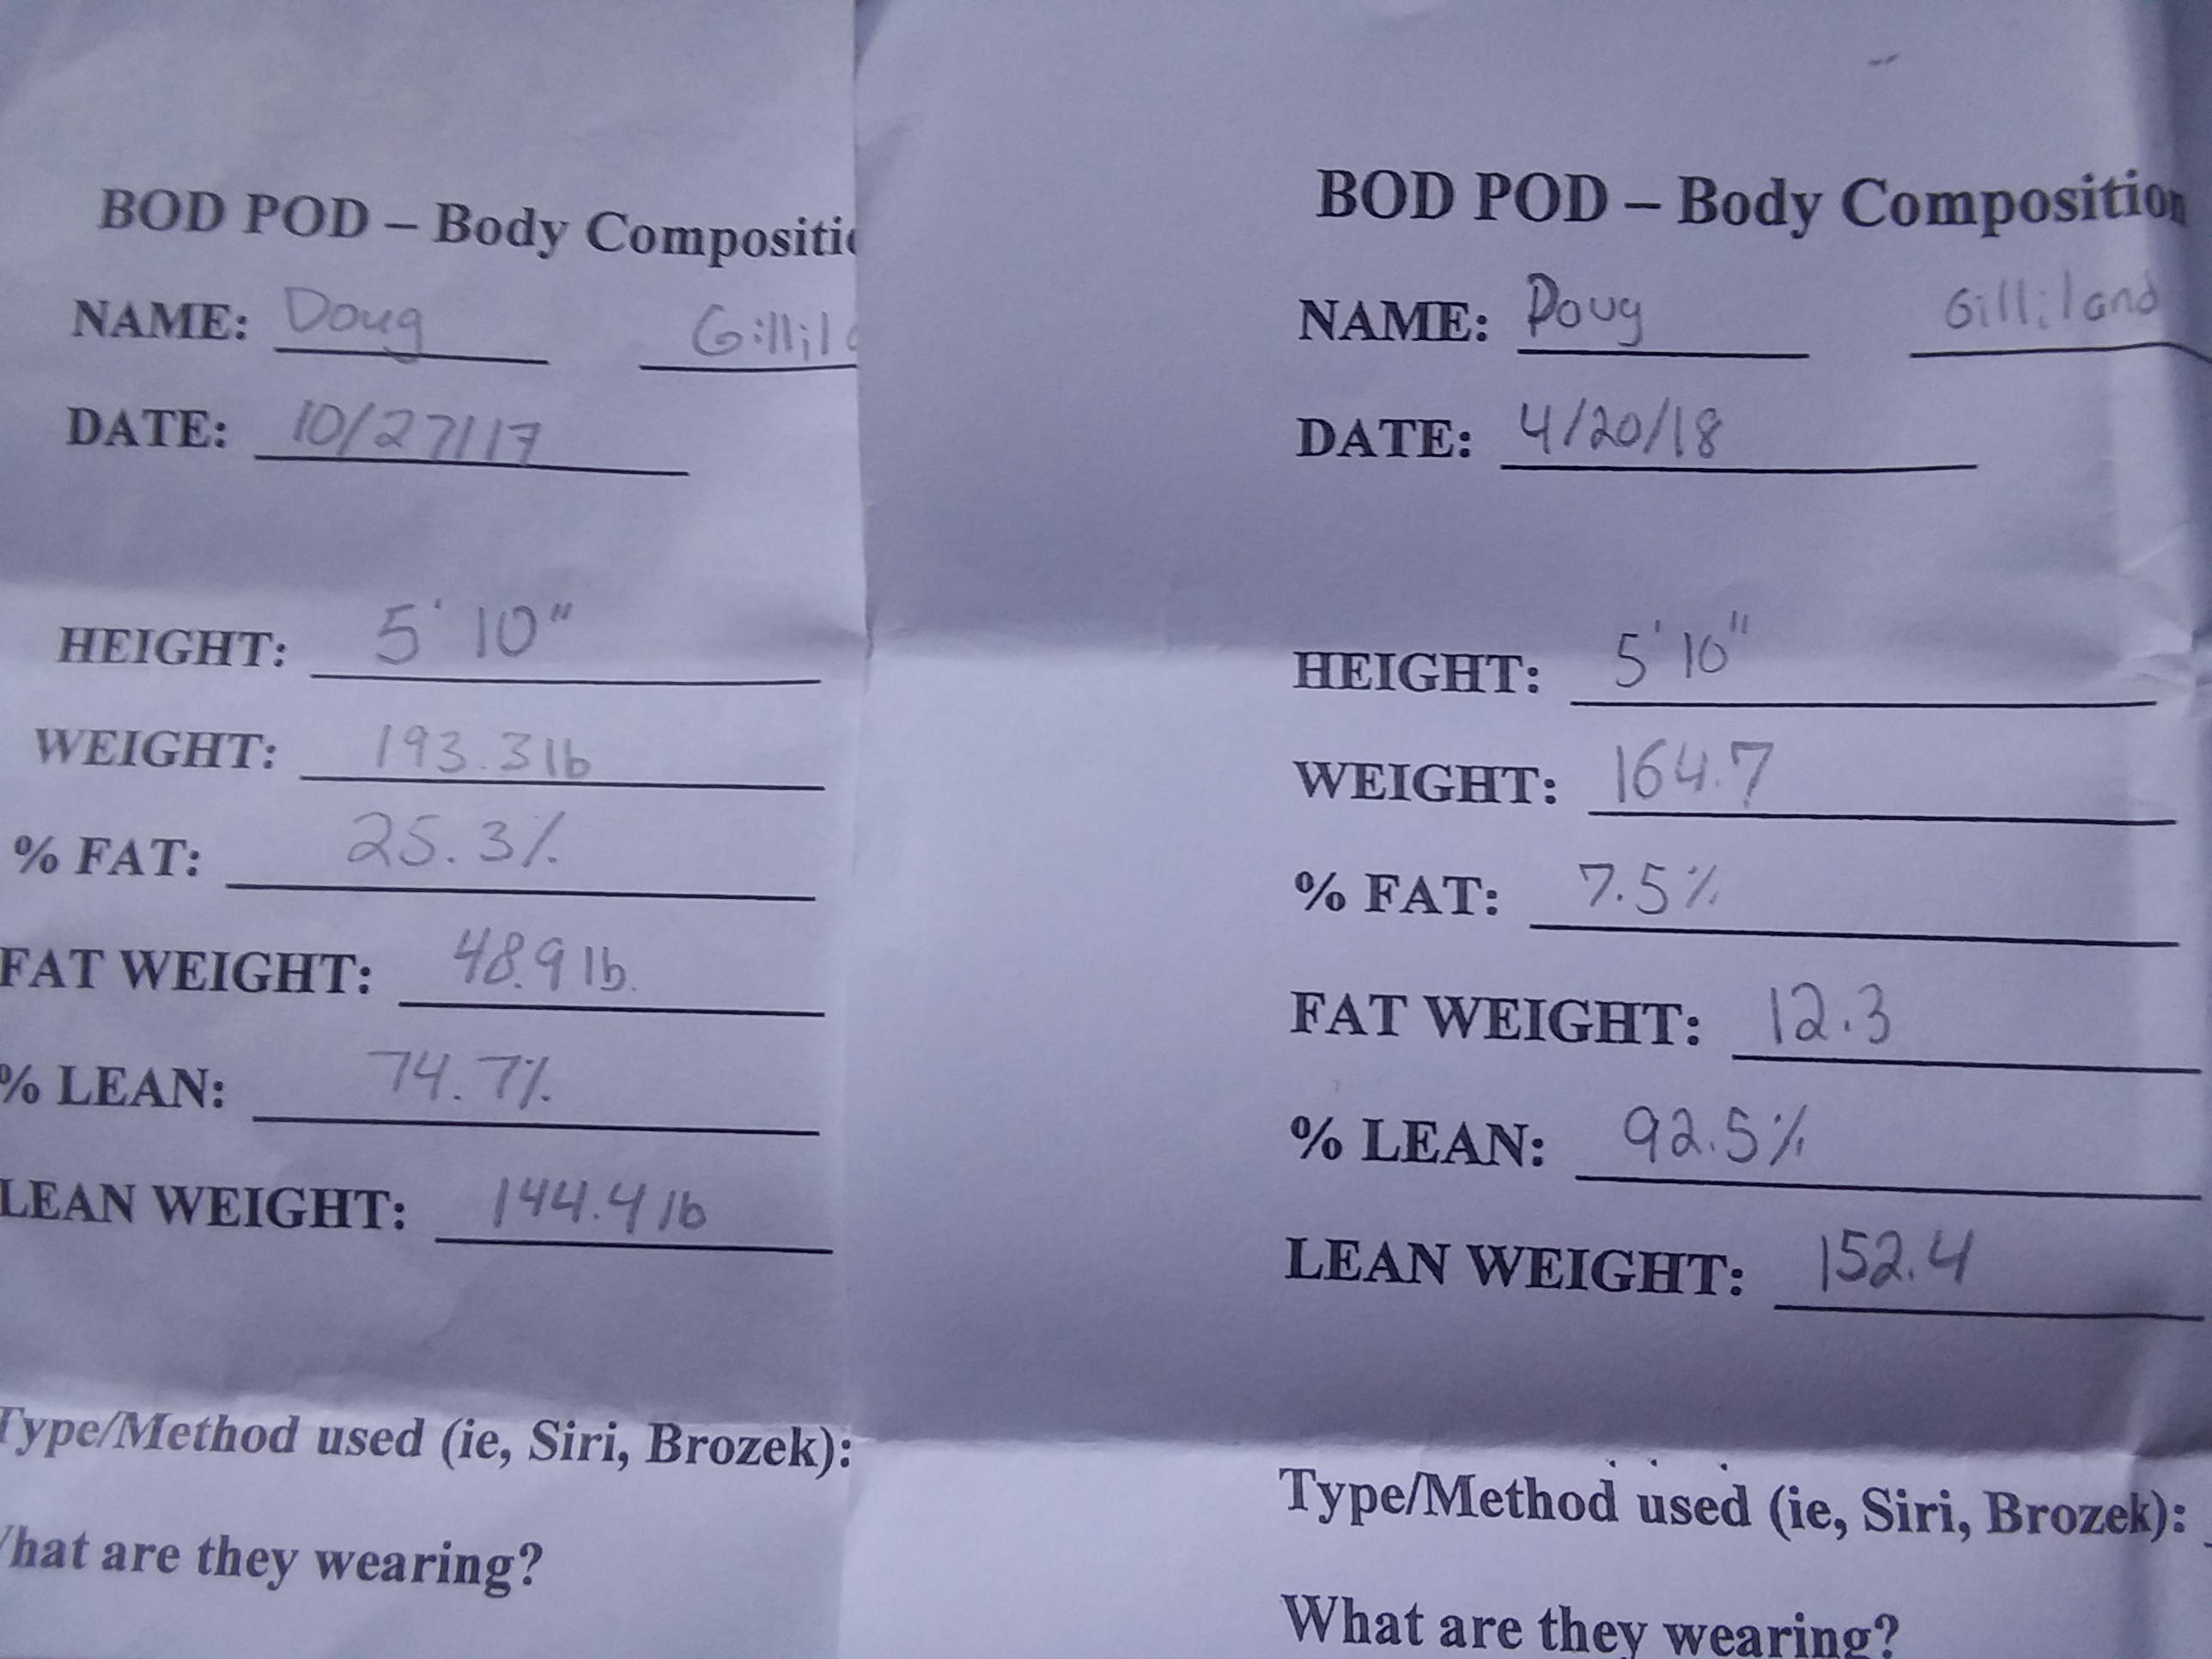 BOD POD – Body Compositio
NAME: Doug Gillil
DATE: 10/27/17
HEIGHT: 5' 10"
WEIGHT: 193.3 lb
% FAT: 25.3%
FAT WEIGHT: 48.9 lb.
% LEAN: 74.7%
LEAN WEIGHT: 144.4 lb
Type/Method used (ie, Siri, Brozek):
What are they wearing?
BOD POD – Body Composition
NAME: Doug Gilliland
DATE: 4/20/18
HEIGHT: 5' 10"
WEIGHT: 164.7
% FAT: 7.5%
FAT WEIGHT: 12.3
% LEAN: 92.5%
LEAN WEIGHT: 152.4
Type/Method used (ie, Siri, Brozek):
What are they wearing?